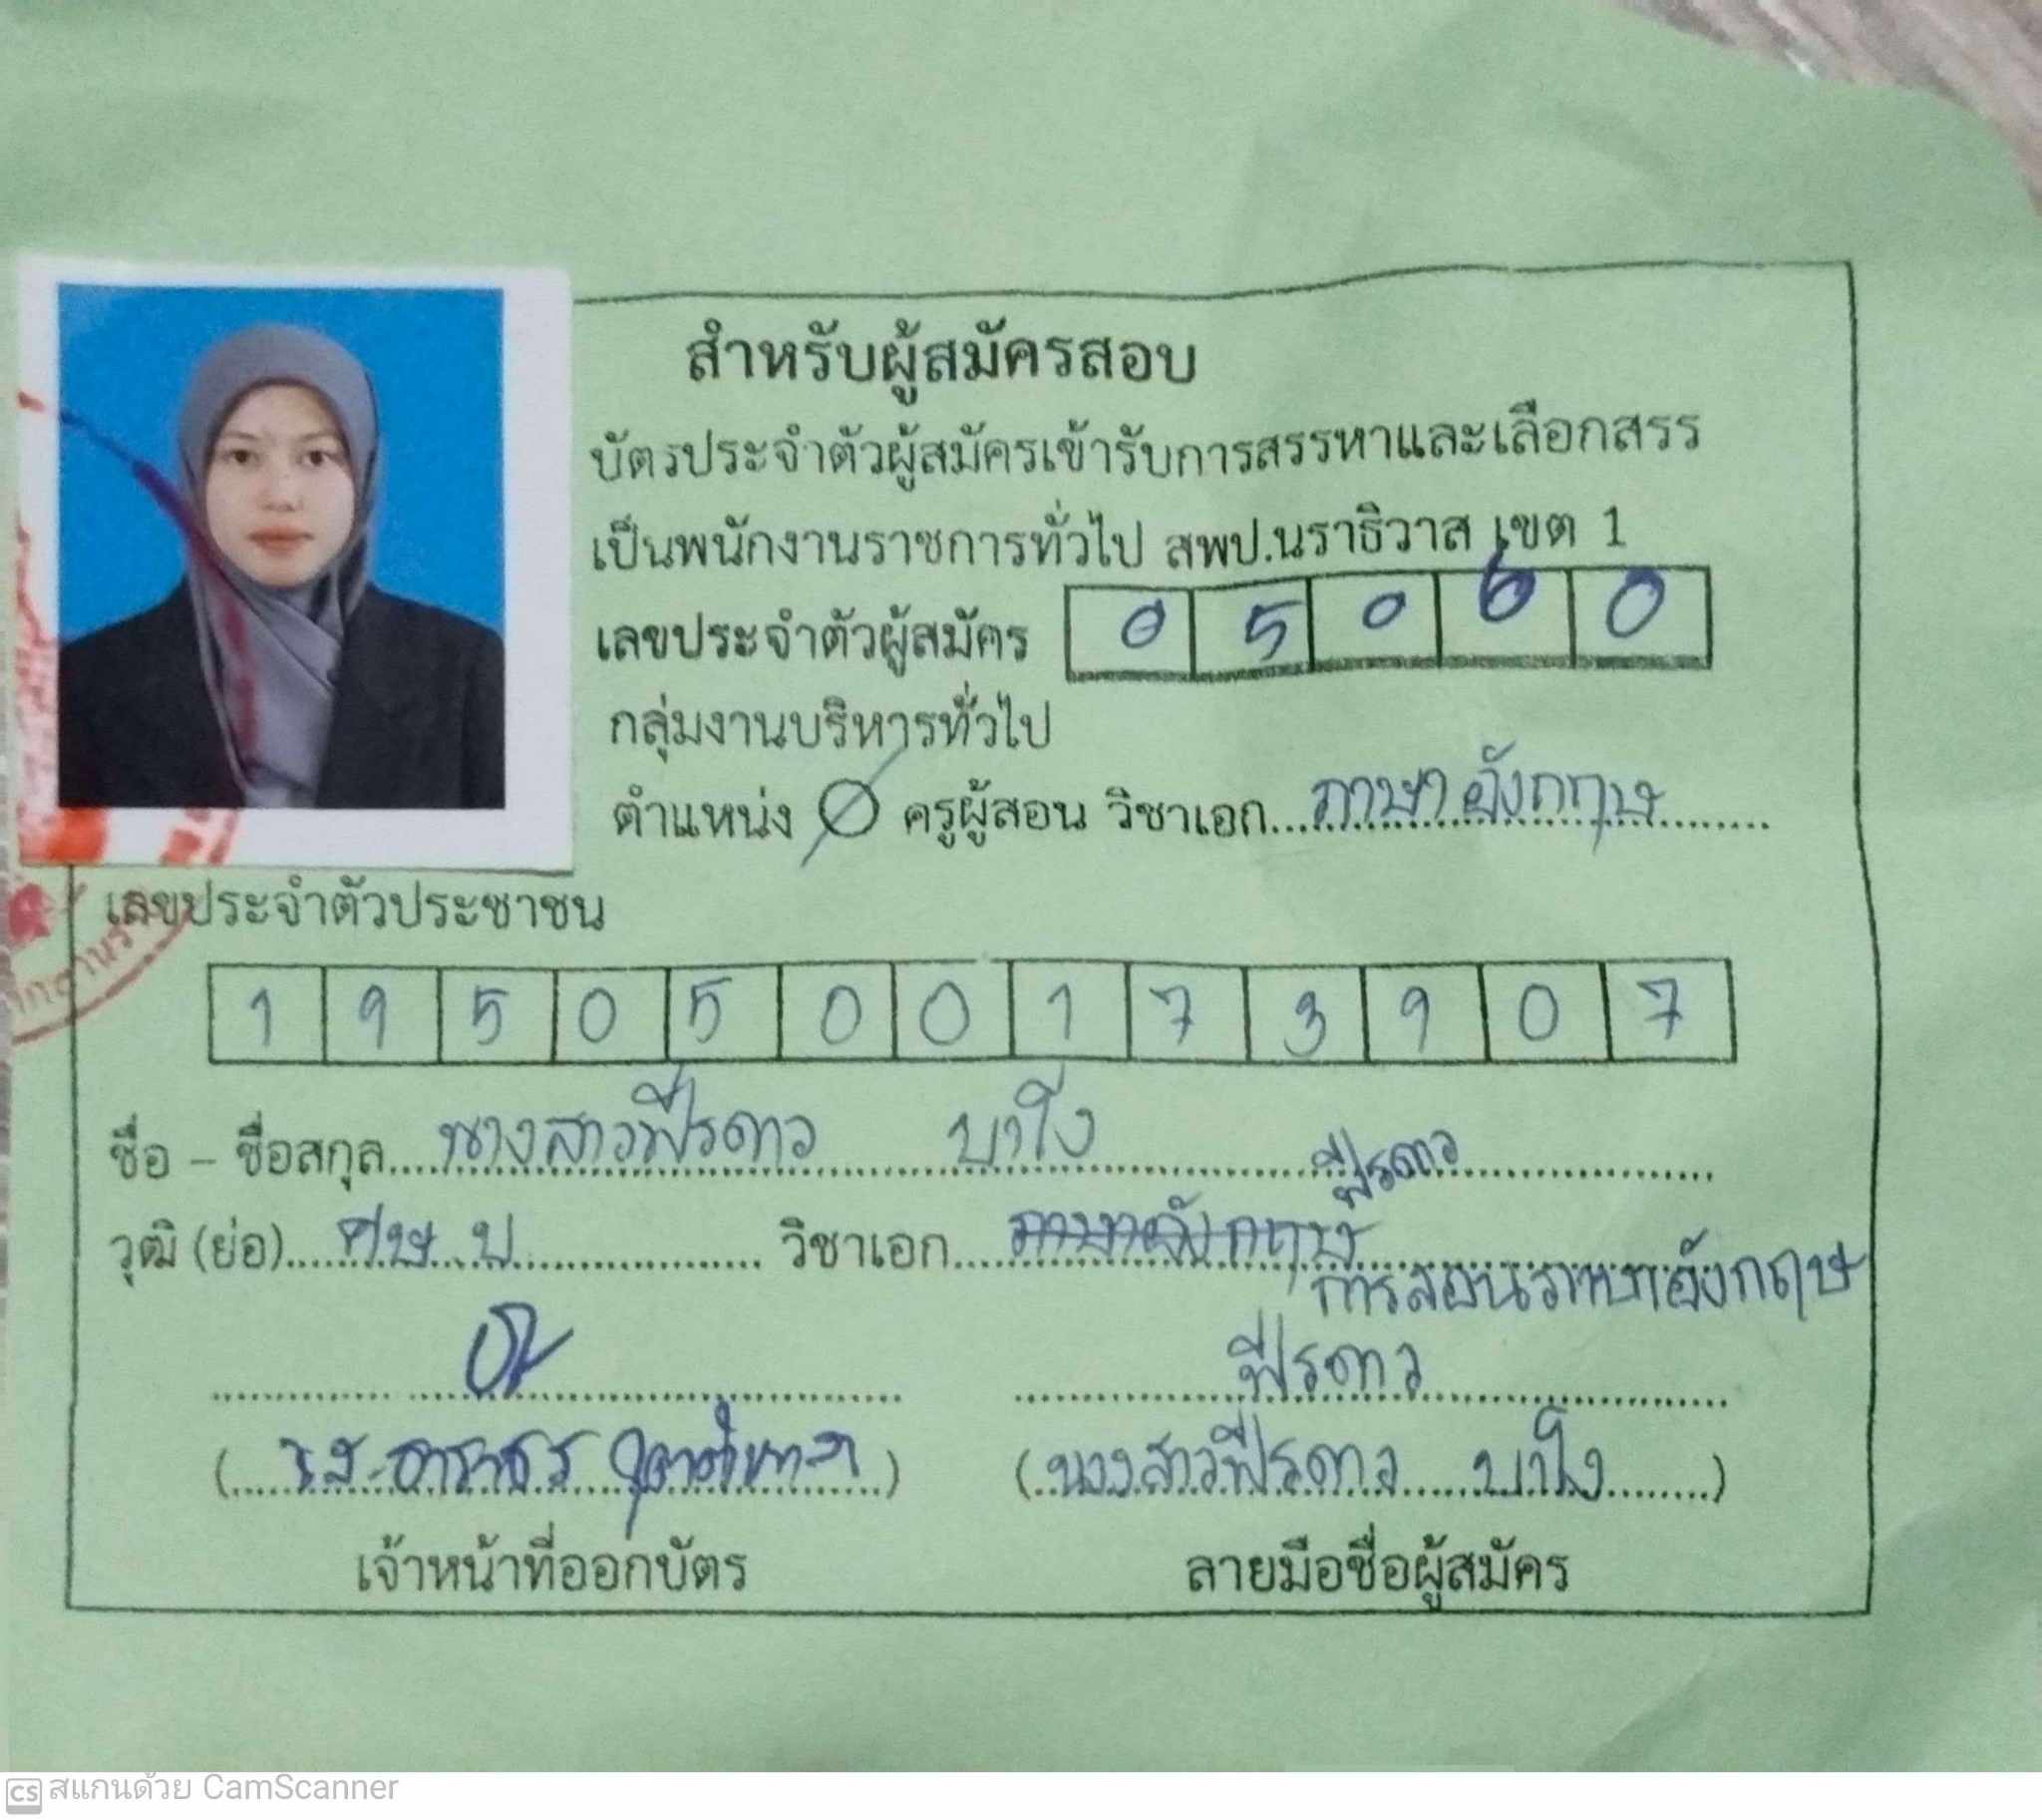 สำหรับผู้สมัครสอบ
บัตรประจำตัวผู้สมัครเข้ารับการสรรหาและเลือกสรร
เป็นพนักงานราชการทั่วไป สพป.นราธิวาส เขต 1
เลขประจำตัวผู้สมัคร 0 5 0 6 0
กลุ่มงานบริหารทั่วไป
ตำแหน่ง ครูผู้สอน วิชาเอก...ภาษาอังกฤษ...
เลขประจำตัวประชาชน
1 9 5 0 5 0 0 1 7 3 9 0 7
ชื่อ - ชื่อสกุล...นางสาวฟิรดาว บาโง...
ฟิรดาว
วุฒิ (ย่อ)...ศษ.บ...วิชาเอก...ภาษาอังกฤษ...
การสอนภาษาอังกฤษ
ฟิรดาว
(นางสาวฟิรดาว บาโง)
เจ้าหน้าที่ออกบัตร ลายมือชื่อผู้สมัคร
CS สแกนด้วย CamScanner